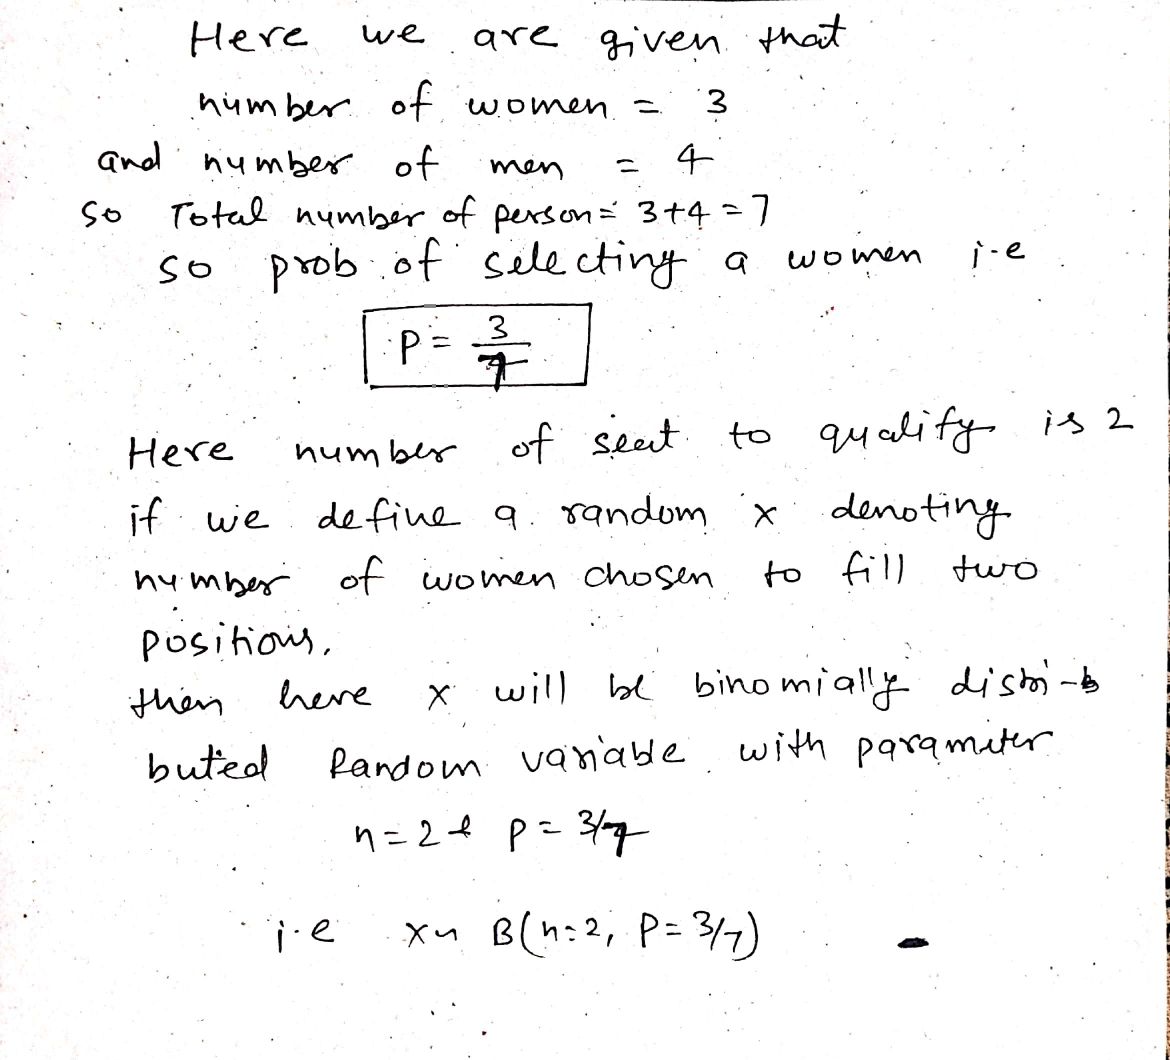 Here we are given that
number of women = 3
and number of men = 4
so Total number of person = 3+4=7
so prob of selecting a women i-e
P = 3/7
Here number of seat to qualify is 2
if we define a random x denoting
number of women chosen to fill two
positions,
then here x will be binomially distri-b
buted Random variable with parameter
n=2 & p = 3/7
i-e x~ B(n=2, P=3/7)